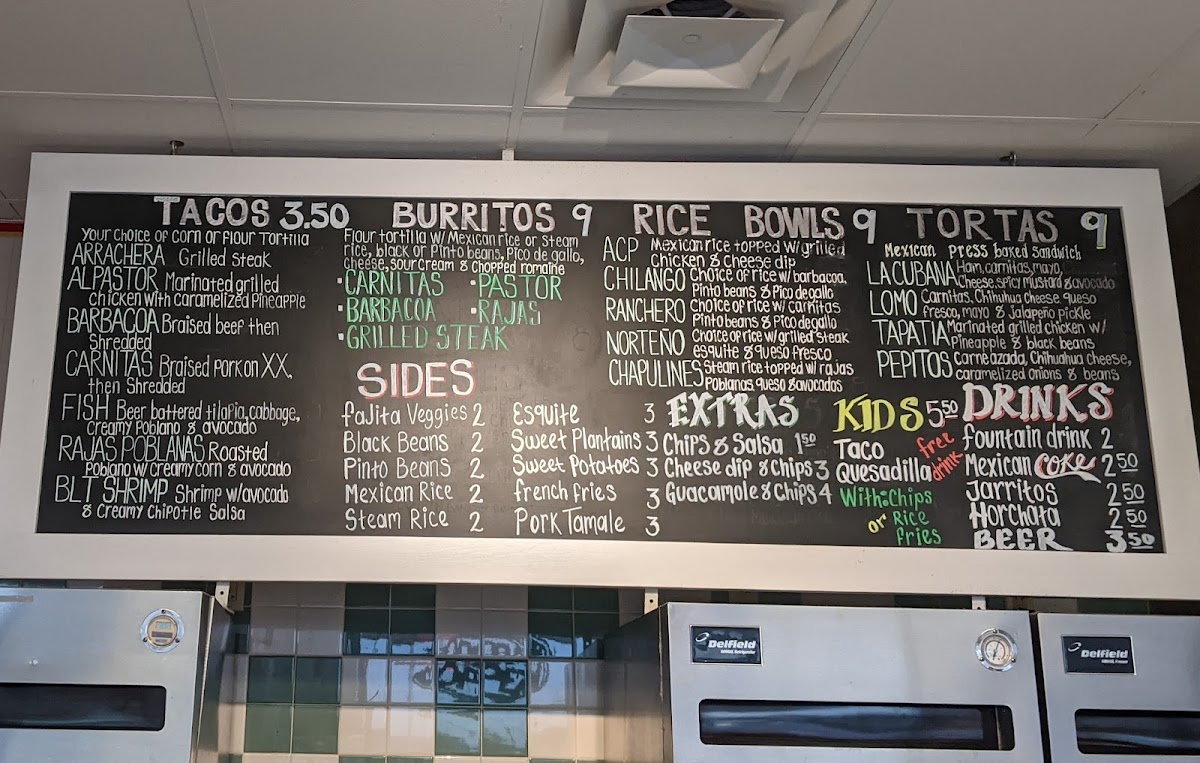 TACOS 3.50
Your choice of corn or flour tortilla
ARRACHERA Grilled steak
ALPASTOR Marinated grilled
chicken with caramelized Pineapple
BARBACOA Braised beef then
Shredded
CARNITAS Braised Pork on XX,
then Shredded
FISH Beer battered tilapia, cabbage,
creamy Poblano & avocado
RAJAS POBLANAS Roasted
Poblano w/ creamy corn & avocado
BLT SHRIMP Shrimp w/avocado
& Creamy Chipotle Salsa
BURRITOS 9
Flour tortilla w/ Mexican rice or steam
rice, black or Pinto beans, Pico de gallo,
cheese, sour cream & chopped romaine
·CARNITAS ·PASTOR
·BARBACOA ·RAJAS
·GRILLED STEAK
SIDES
Fajita Veggies 2
Black Beans 2
Pinto Beans 2
Mexican Rice 2
Steam Rice 2
Esquite 3
Sweet Plantains 3
Sweet Potatoes 3
french fries 3
Pork Tamale 3
RICE BOWLS 9
ACP Mexican rice topped w/grilled
Chicken & cheese dip
CHILANGO Choice of rice w/ barbacoa,
Pinto beans & Pico de gallo
RANCHERO Choice of rice w/ carnitas
Pinto beans & Pico de gallo
NORTEÑO Choice of rice w/ grilled steak
esquite & queso fresco
CHAPULINES Steam rice topped w/ rajas
Poblanas, queso & avocados
EXTRAS
Chips & Salsa 1.50
Cheese dip & Chips 3
Guacamole & Chips 4
TORTAS 9
Mexican Press baked sandwich
LA CUBANA Ham, carnitas, mayo,
Cheese, spicy mustard & avocado
LOMO Carnitas, Chihuahua cheese queso
fresco, mayo & Jalapeño pickle
TAPATIA Marinated grilled chicken w/
Pineapple & black beans
PEPITOS Carne azada, Chihuahua cheese,
caramelized onions & beans
KIDS 5.50
Taco
Quesadilla
free
drink
With: Chips
or Rice
Fries
DRINKS
fountain drink 2
Mexican coke 2.50
Jarritos 2.50
Horchata 2.50
BEER 3.50
Delfield
Delfield